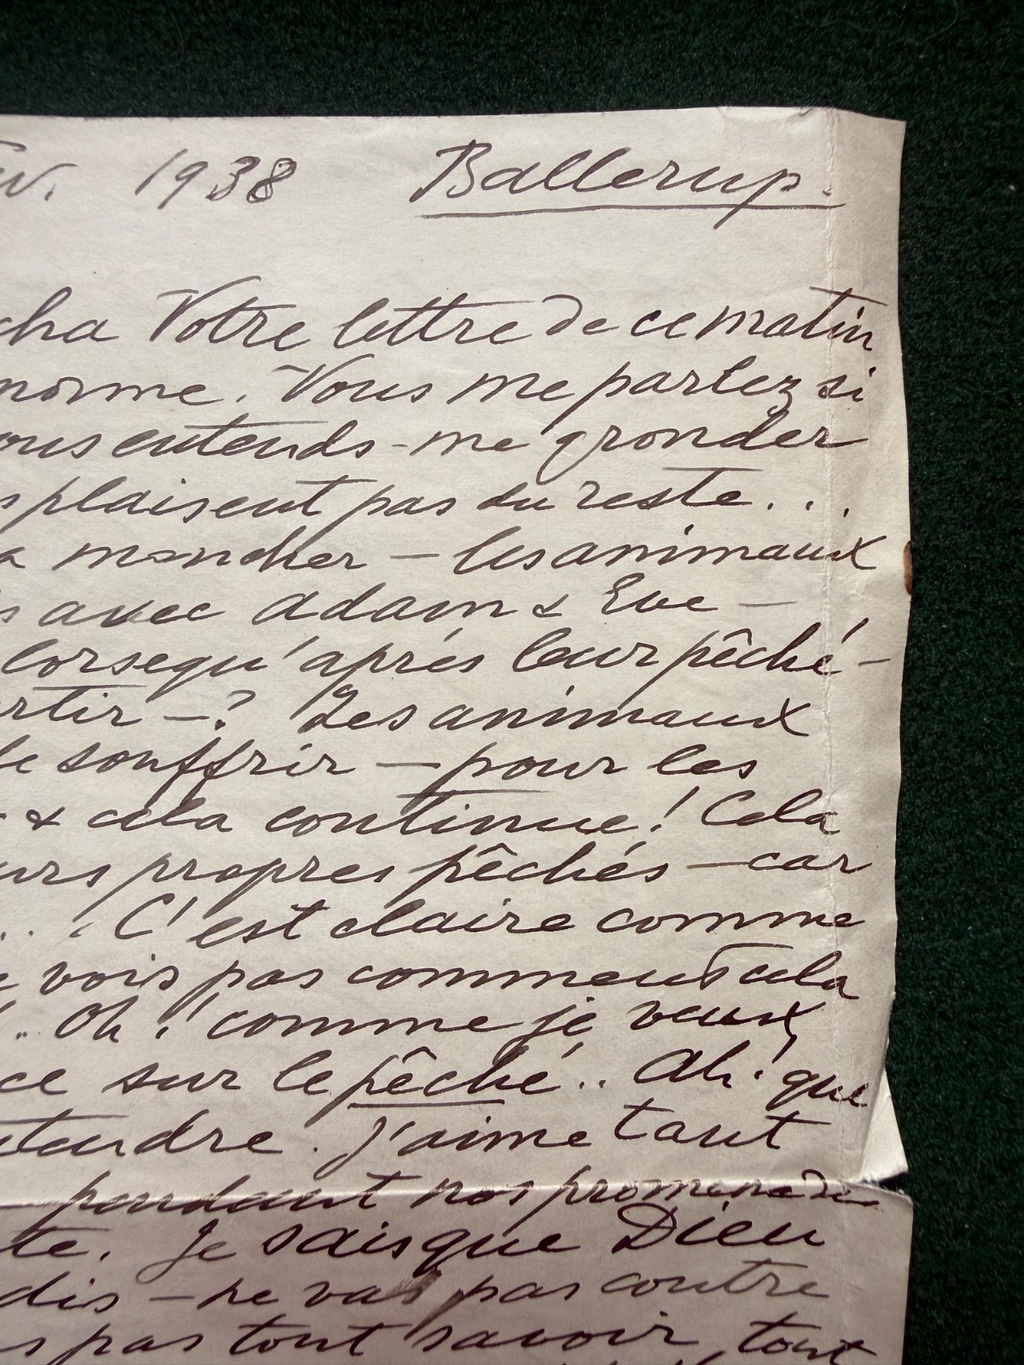 1938 Ballerup.
cha Votre lettre de ce matin
norme. Vous me parlez si
ous entends-me gronder
s plaisent pas du reste...
a moncher — les animaux
s avec Adam & Eve —
lorsequ'aprés leur pêché —
rtir —? Les animaux
de souffrir — pour les
& cela continue! Cela
urs propres pêchés — car
... C'est claire comme
vois pas comment cela
.. Oh! comme je veux
ce sur le pêché.. Ah! que
tendre. J'aime tant
pendant nos promenades
te. Je sais que Dieu
dis — ne va pas contre
s pas tout savoir, tout